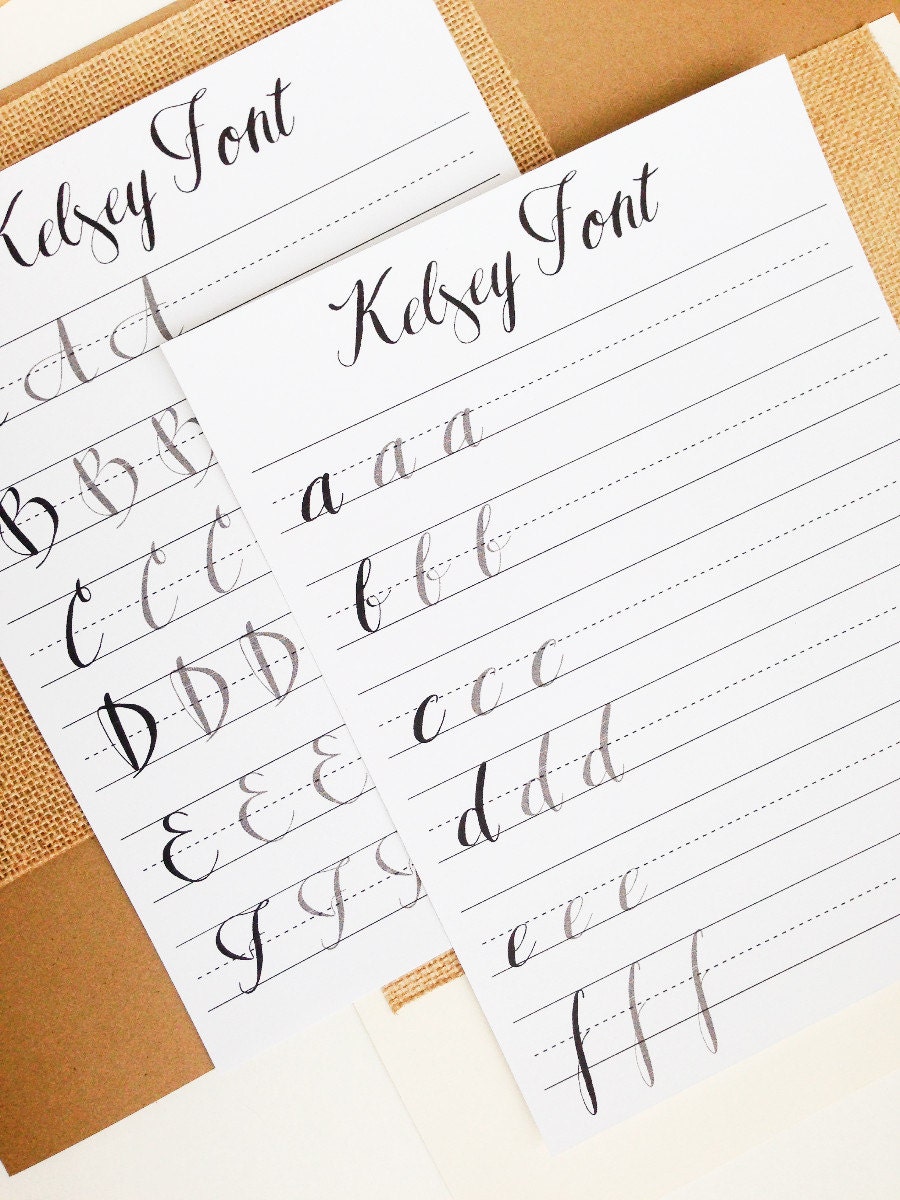 Kelsey Font
A A
B B B
C C C
D D D
E E E
F F F
Kelsey Font
a a a
b b b
c c c
d d d
e e e
f f f